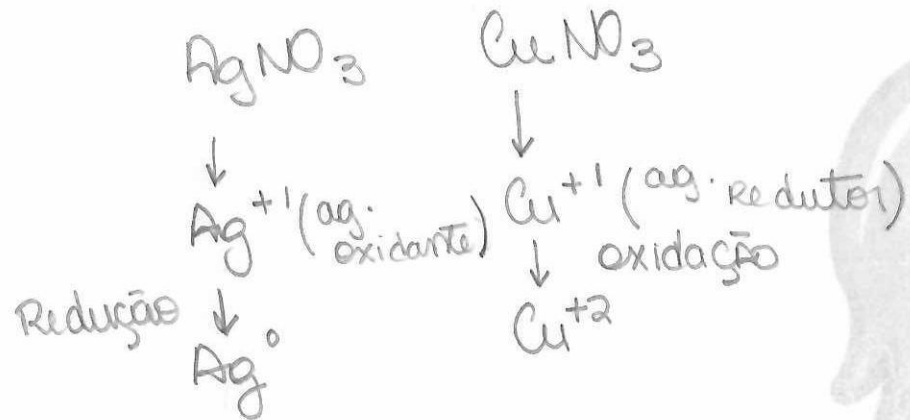 AgNO3 CuNO3
↓ ↓
Ag+1 (ag. oxidante) Cu+1 (ag. Redutor)
oxidação
Redução ↓ ↓
Ag0 Cu+2